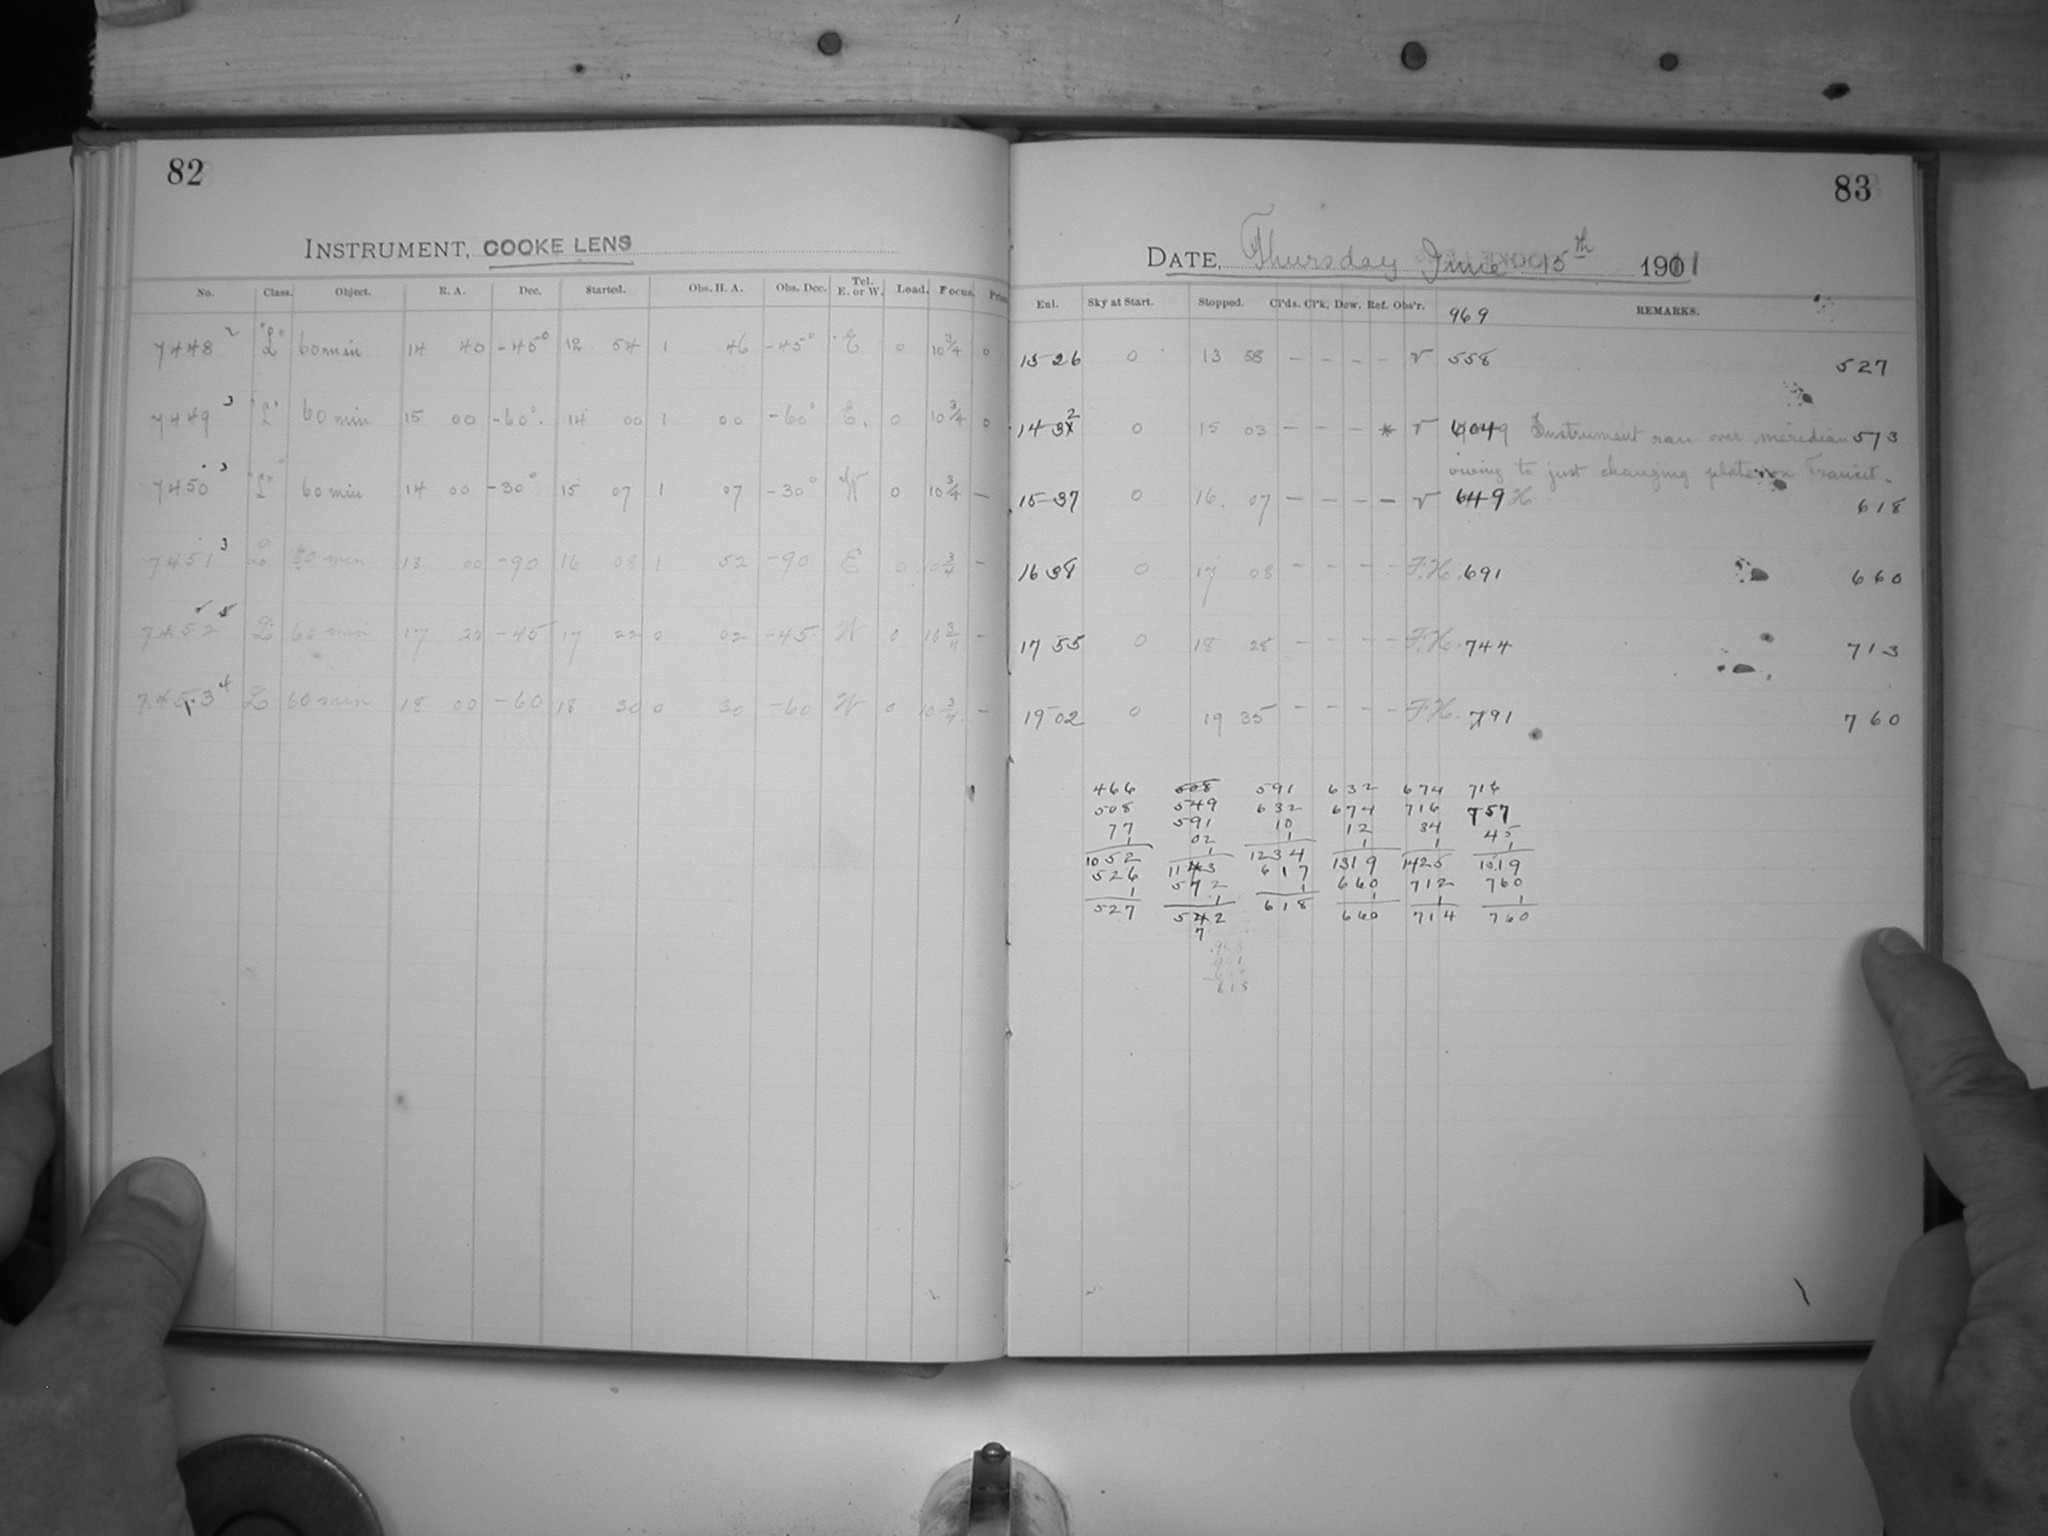 82
INSTRUMENT, COOKE LENS
No. Class. Object. R. A. Dec. Started. Obs. H. A. Obs. Dec. Tel. E. or W. Load. Focus.
7448 2 "L" 60 min 14 40 -45° 12 54 1 46 -45° E 0 10 3/4 0
7449 3 "L" 60 min 15 00 -60°. 14 00 1 00 -60° E. 0 10 3/4 0
7450 3 "L" 60 min 14 00 -30° 15 07 1 07 -30° W 0 10 3/4 —
7451 3 L 60 min 18 00 -90 16 08 1 52 -90 E 0 10 3/4 —
7452 L 60 min 17 20 -45 17 22 0 02 -45 W 0 10 3/4 —
7453 4 L 60 min 18 00 -60 18 30 0 30 -60 W 0 10 3/4 —
83
DATE, Thursday June 15th 1911
Enl. Sky at Start. Stopped. Cl'ds. Cl'k. Dew. Ref. Obs'r. 969 REMARKS.
13 26 0 13 58 — — — — V 558 527
14 32 0 15 03 — — — * V 604 Instrument ran over meridian 573
owing to just changing plate on Transit.
15 37 0 16. 07 — — — — V 649 618
16 38 0 17 08 — — — — F.H. 691 660
17 55 0 18 25 — — — — F.H. 744 713
19 02 0 19 35 — — — — F.H. 791 760
466 508 591 632 674 716
508 549 632 674 716 757
77 591 10 12 34 45
1 02 1 1 1 1
1052 1143 1234 1319 1425 1519
526 572 617 660 712 760
1 1 1 1 1 1
527 542 618 660 714 760
7
618